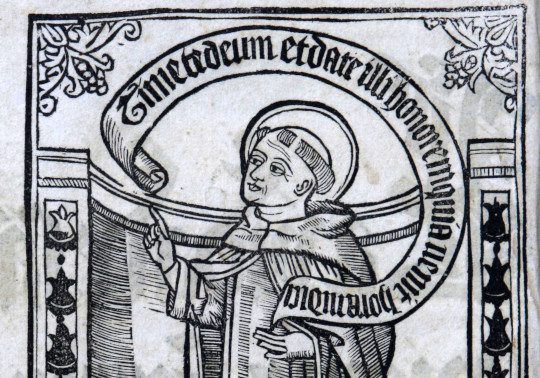 Timete deum et date illi honorem quia uenit hora iudici